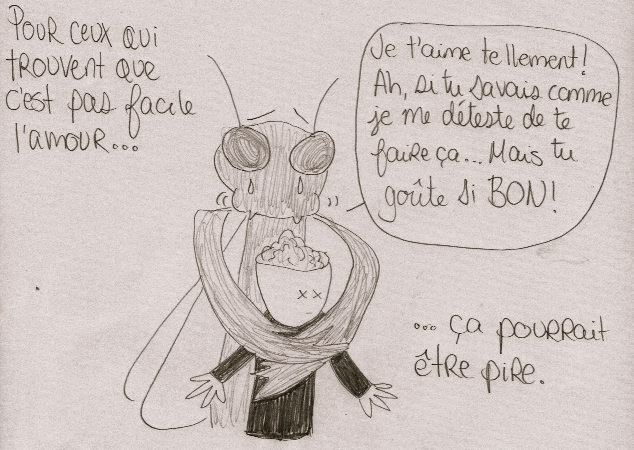 Pour ceux qui
trouvent que
c'est pas facile
l'amour...
Je t'aime tellement!
Ah, si tu savais comme
je me déteste de te
faire ça... Mais tu
goûte si BON!
... ça pourrait
être pire.